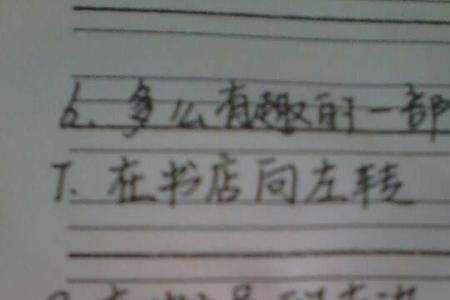 6. 多么有趣的一部
7. 在书店向左转